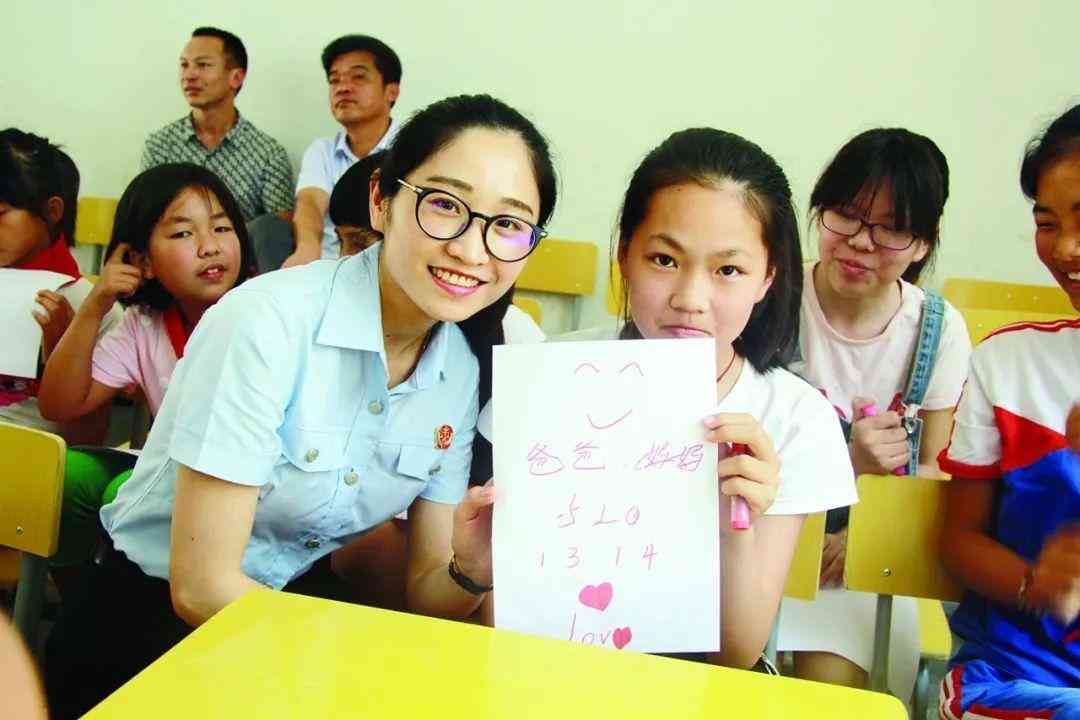 爸爸.妈妈
520
1314
love